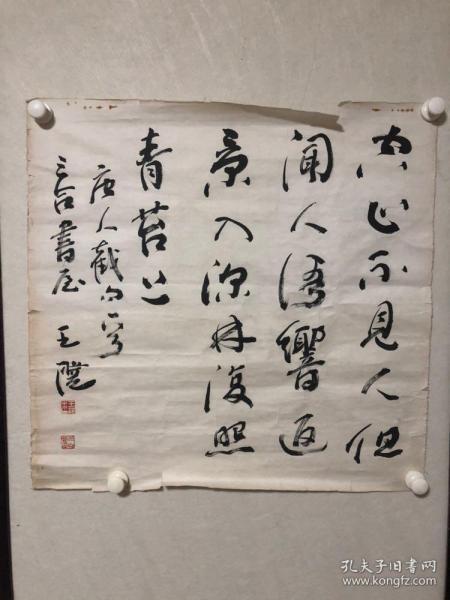 空山不見人但
闻人語響返
景入深林復照
青苔上
唐人截句
書屋 王
孔夫子旧书网
www.kongfz.com